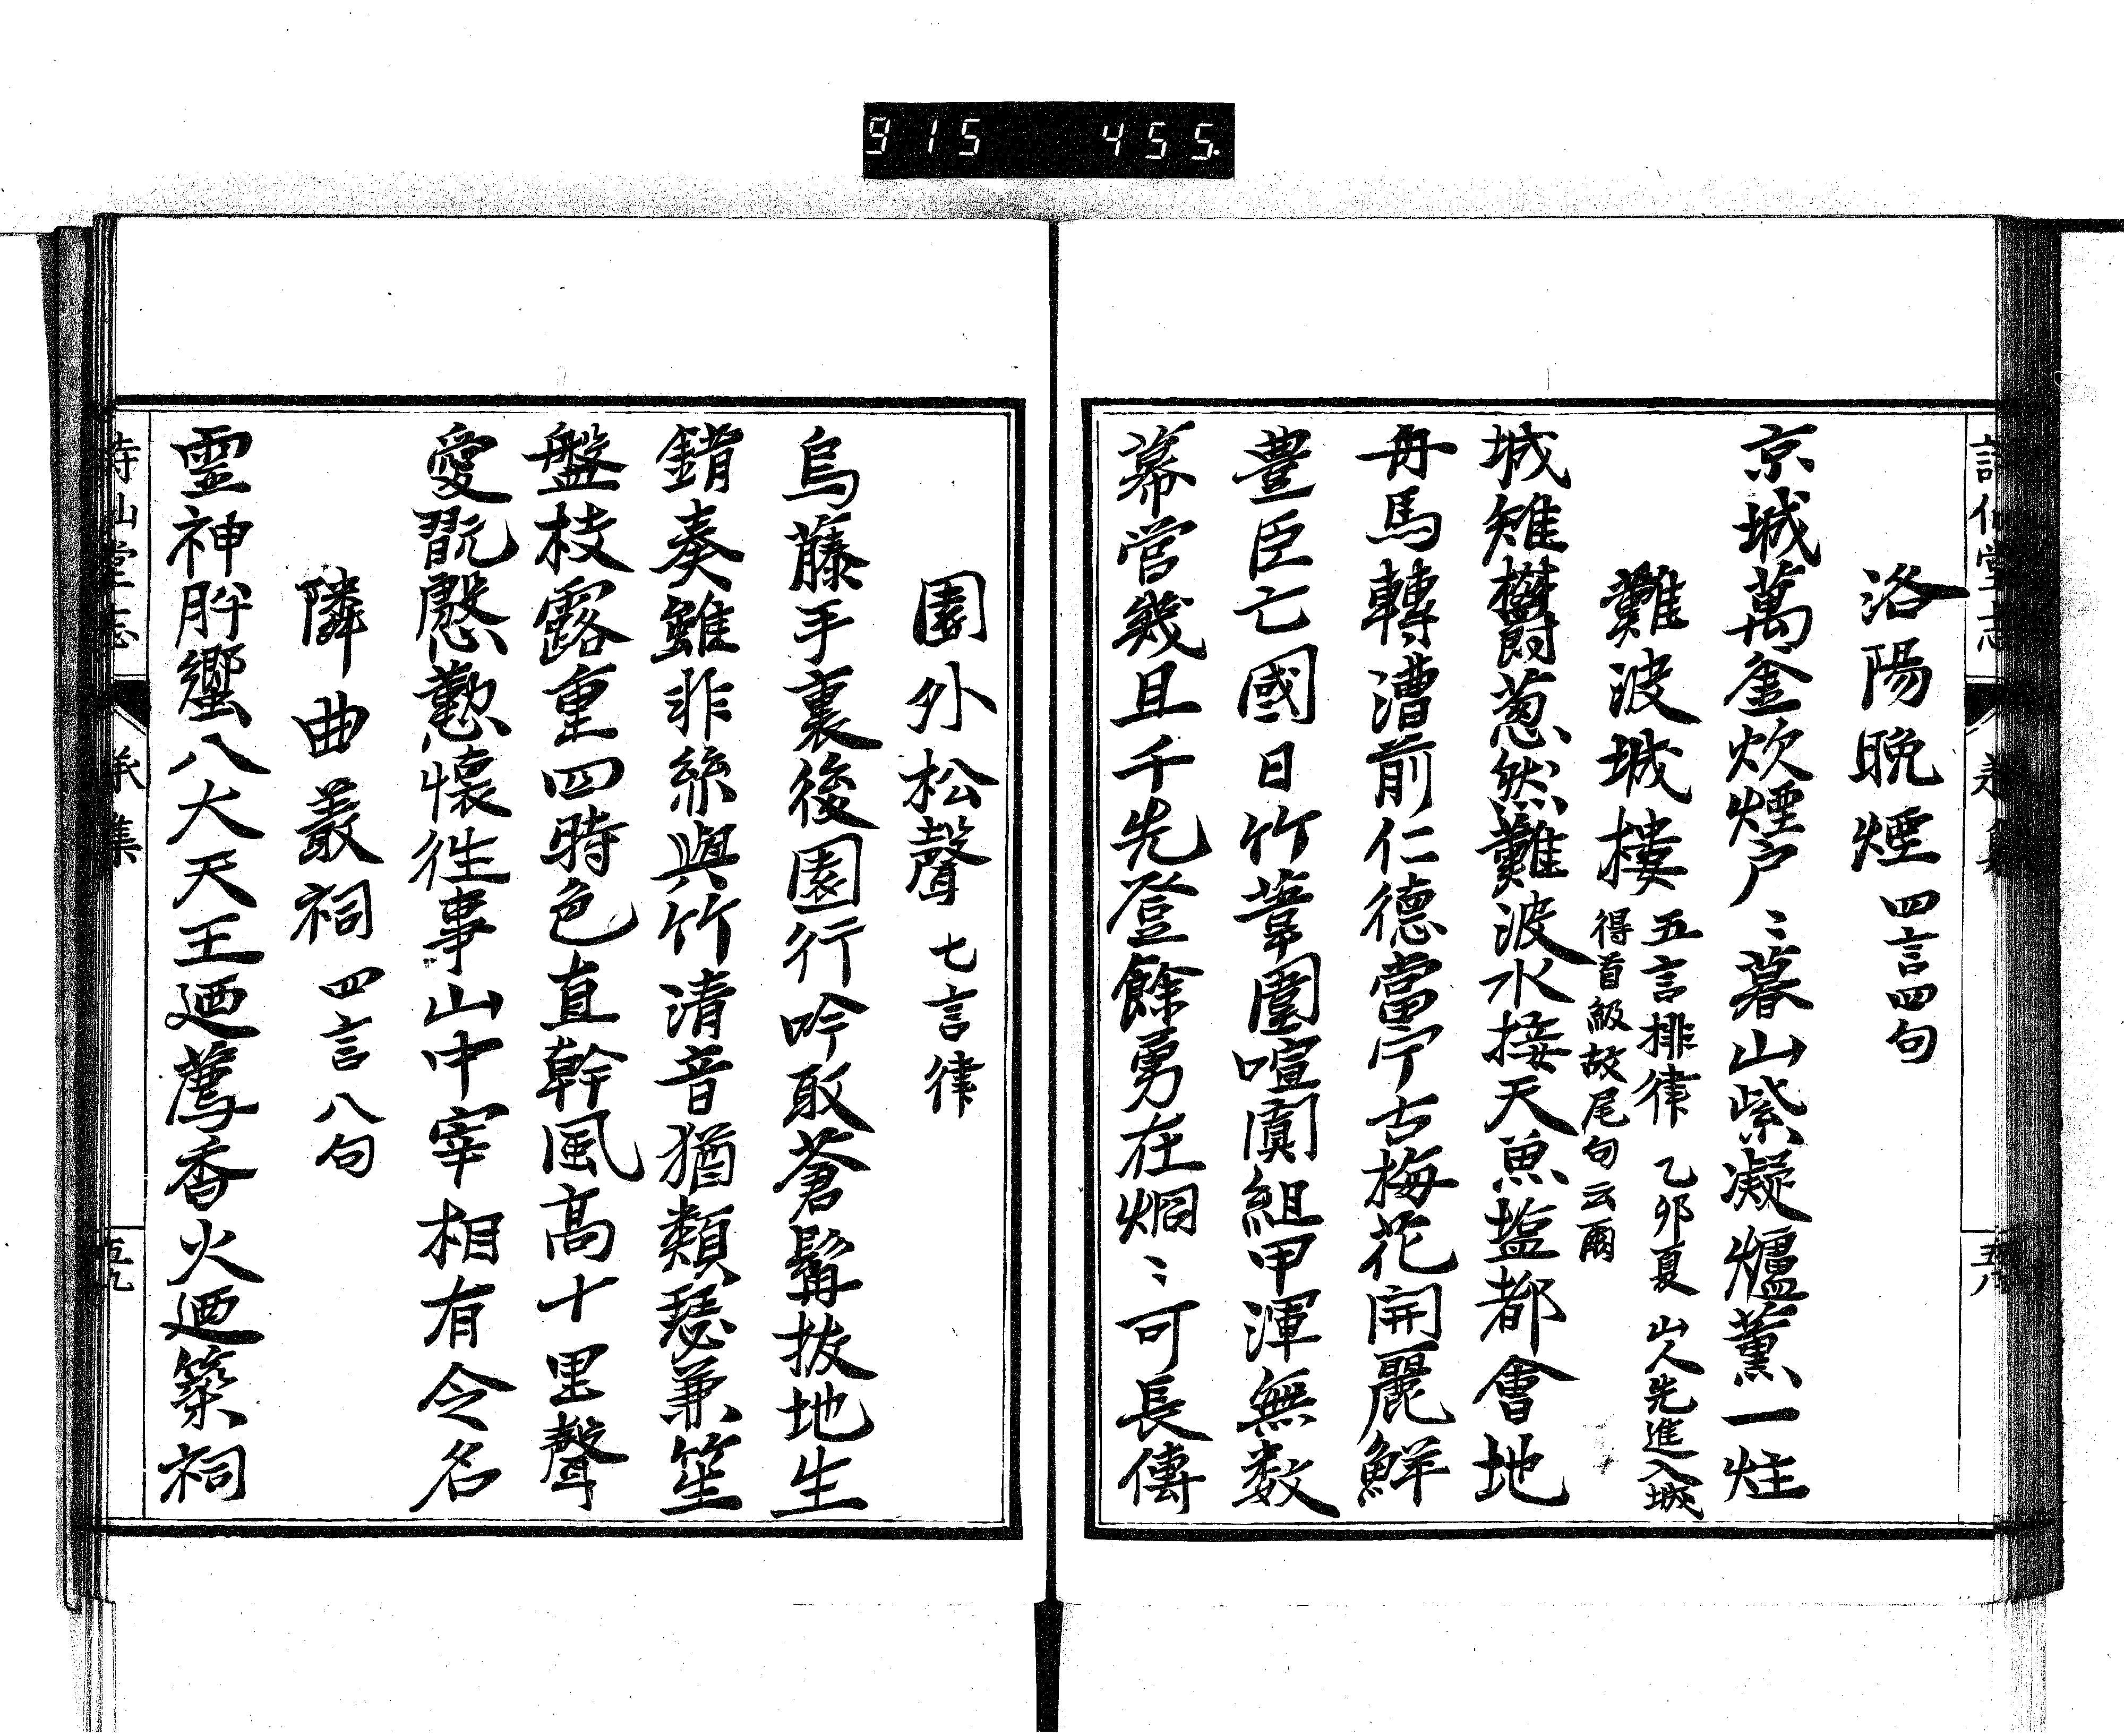 915 455
洛陽晩煙 四言四句
京城萬釜炊煙戸〻暮山紫凝爐薫一炷
難波城樓 五言排律 乙卯夏 山人先進入城
得首級故尾句云爾
城雉欝葱然難波水接天魚塩都會地
舟馬轉漕前仁德當宁古梅花開麗鮮
豊臣亡國日竹葦圍喧闐組甲渾無数
幕営幾且千先登餘勇在烱〻可長傳
園外松聲 七言律
烏藤手裏後園行吟取蒼髯拔地生
錯奏雖非絲與竹清音猶類瑟兼笙
盤枝露重四時色直幹風高十里聲
愛翫慇懃懷徃事山中宰相有令名
隣曲叢祠 四言八句
霊神肸蠁八大天王廼薦香火廼築祠
堂志
集
五九
五八